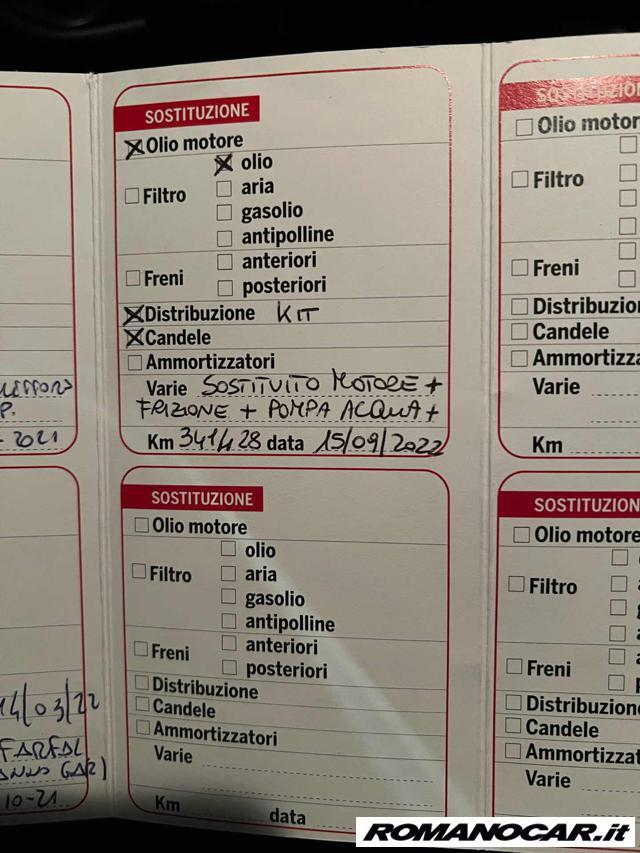 SOSTITUZIONE
Olio motore
olio
Filtro
aria
gasolio
antipolline
Freni
anteriori
posteriori
Distribuzione KIT
Candele
Ammortizzatori
Varie SOSTITUITO MOTORE +
FRIZIONE + POMPA ACQUA +
Km 341428 data 15/09/2022
P.
- 2021
SOSTITUZIONE
Olio motore
olio
Filtro
aria
gasolio
antipolline
Freni
anteriori
posteriori
Distribuzione
Candele
Ammortizzatori
Varie
Km data
14/03/22
FARFAL
GAR)
10-21
SOSTITUZION
Olio motor
Filtro
Freni
Distribuzio
Candele
Ammortizza
Varie
Km
SOSTITUZION
Olio motore
Filtro
Freni
Distribuzione
Candele
Ammortizzat
Varie
ROMANOCAR.it